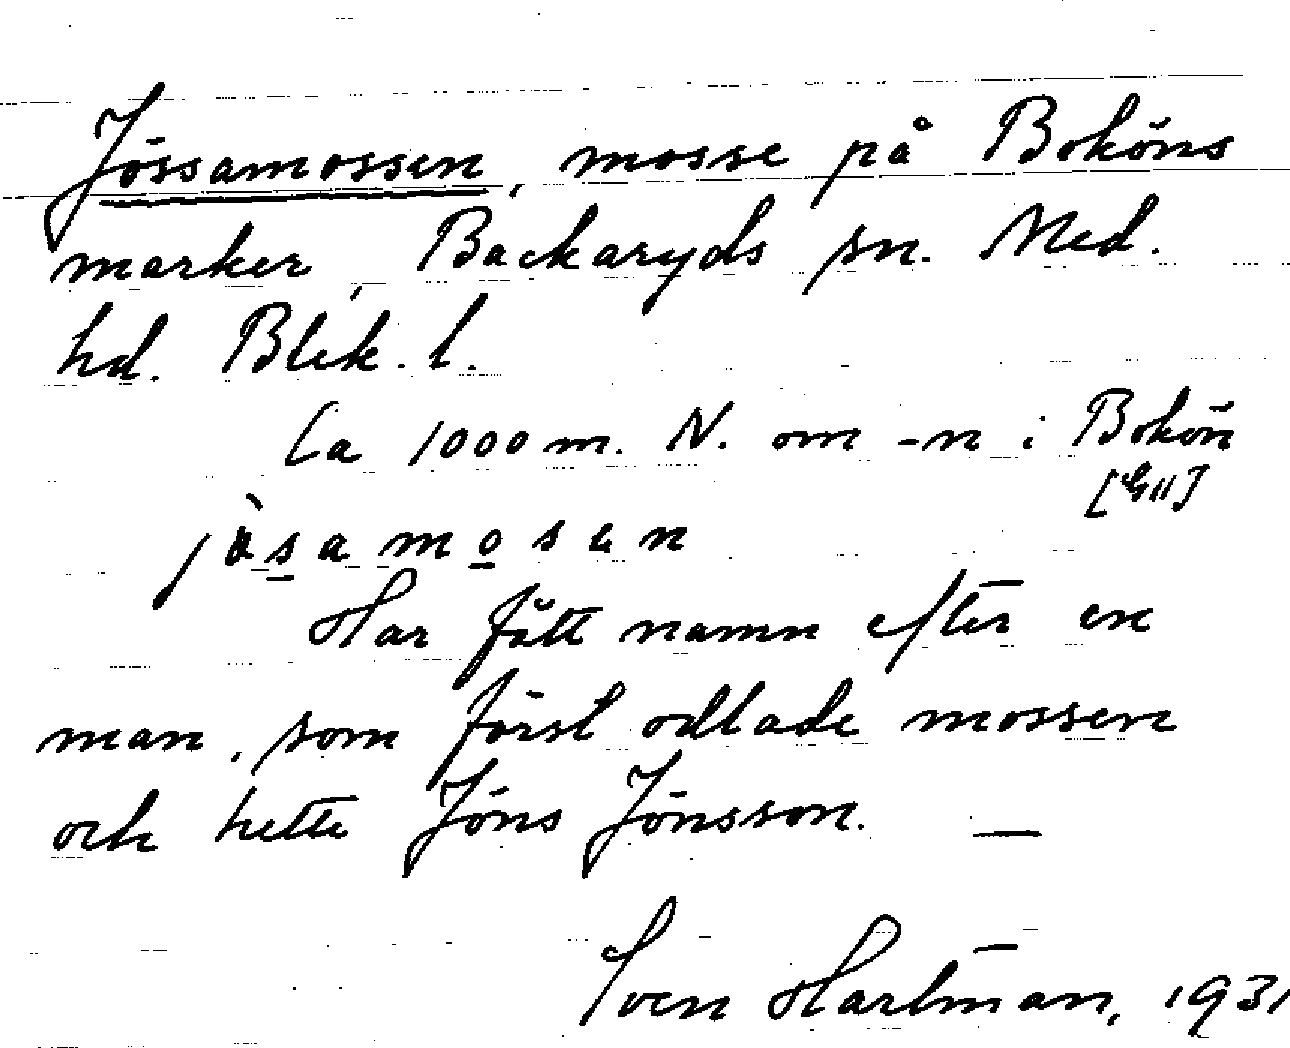 Jössamossen, mosse på Boköns
marker, Backaryds sn. Med.
hd. Blek. l.
Ca 1000 m. N. om -n i Bokön
[G11]
jö̀samosen
Har fått namn efter en
man, som först odlade mossen
och hette Jöns Jönsson. —
Sven Hartman, 1931